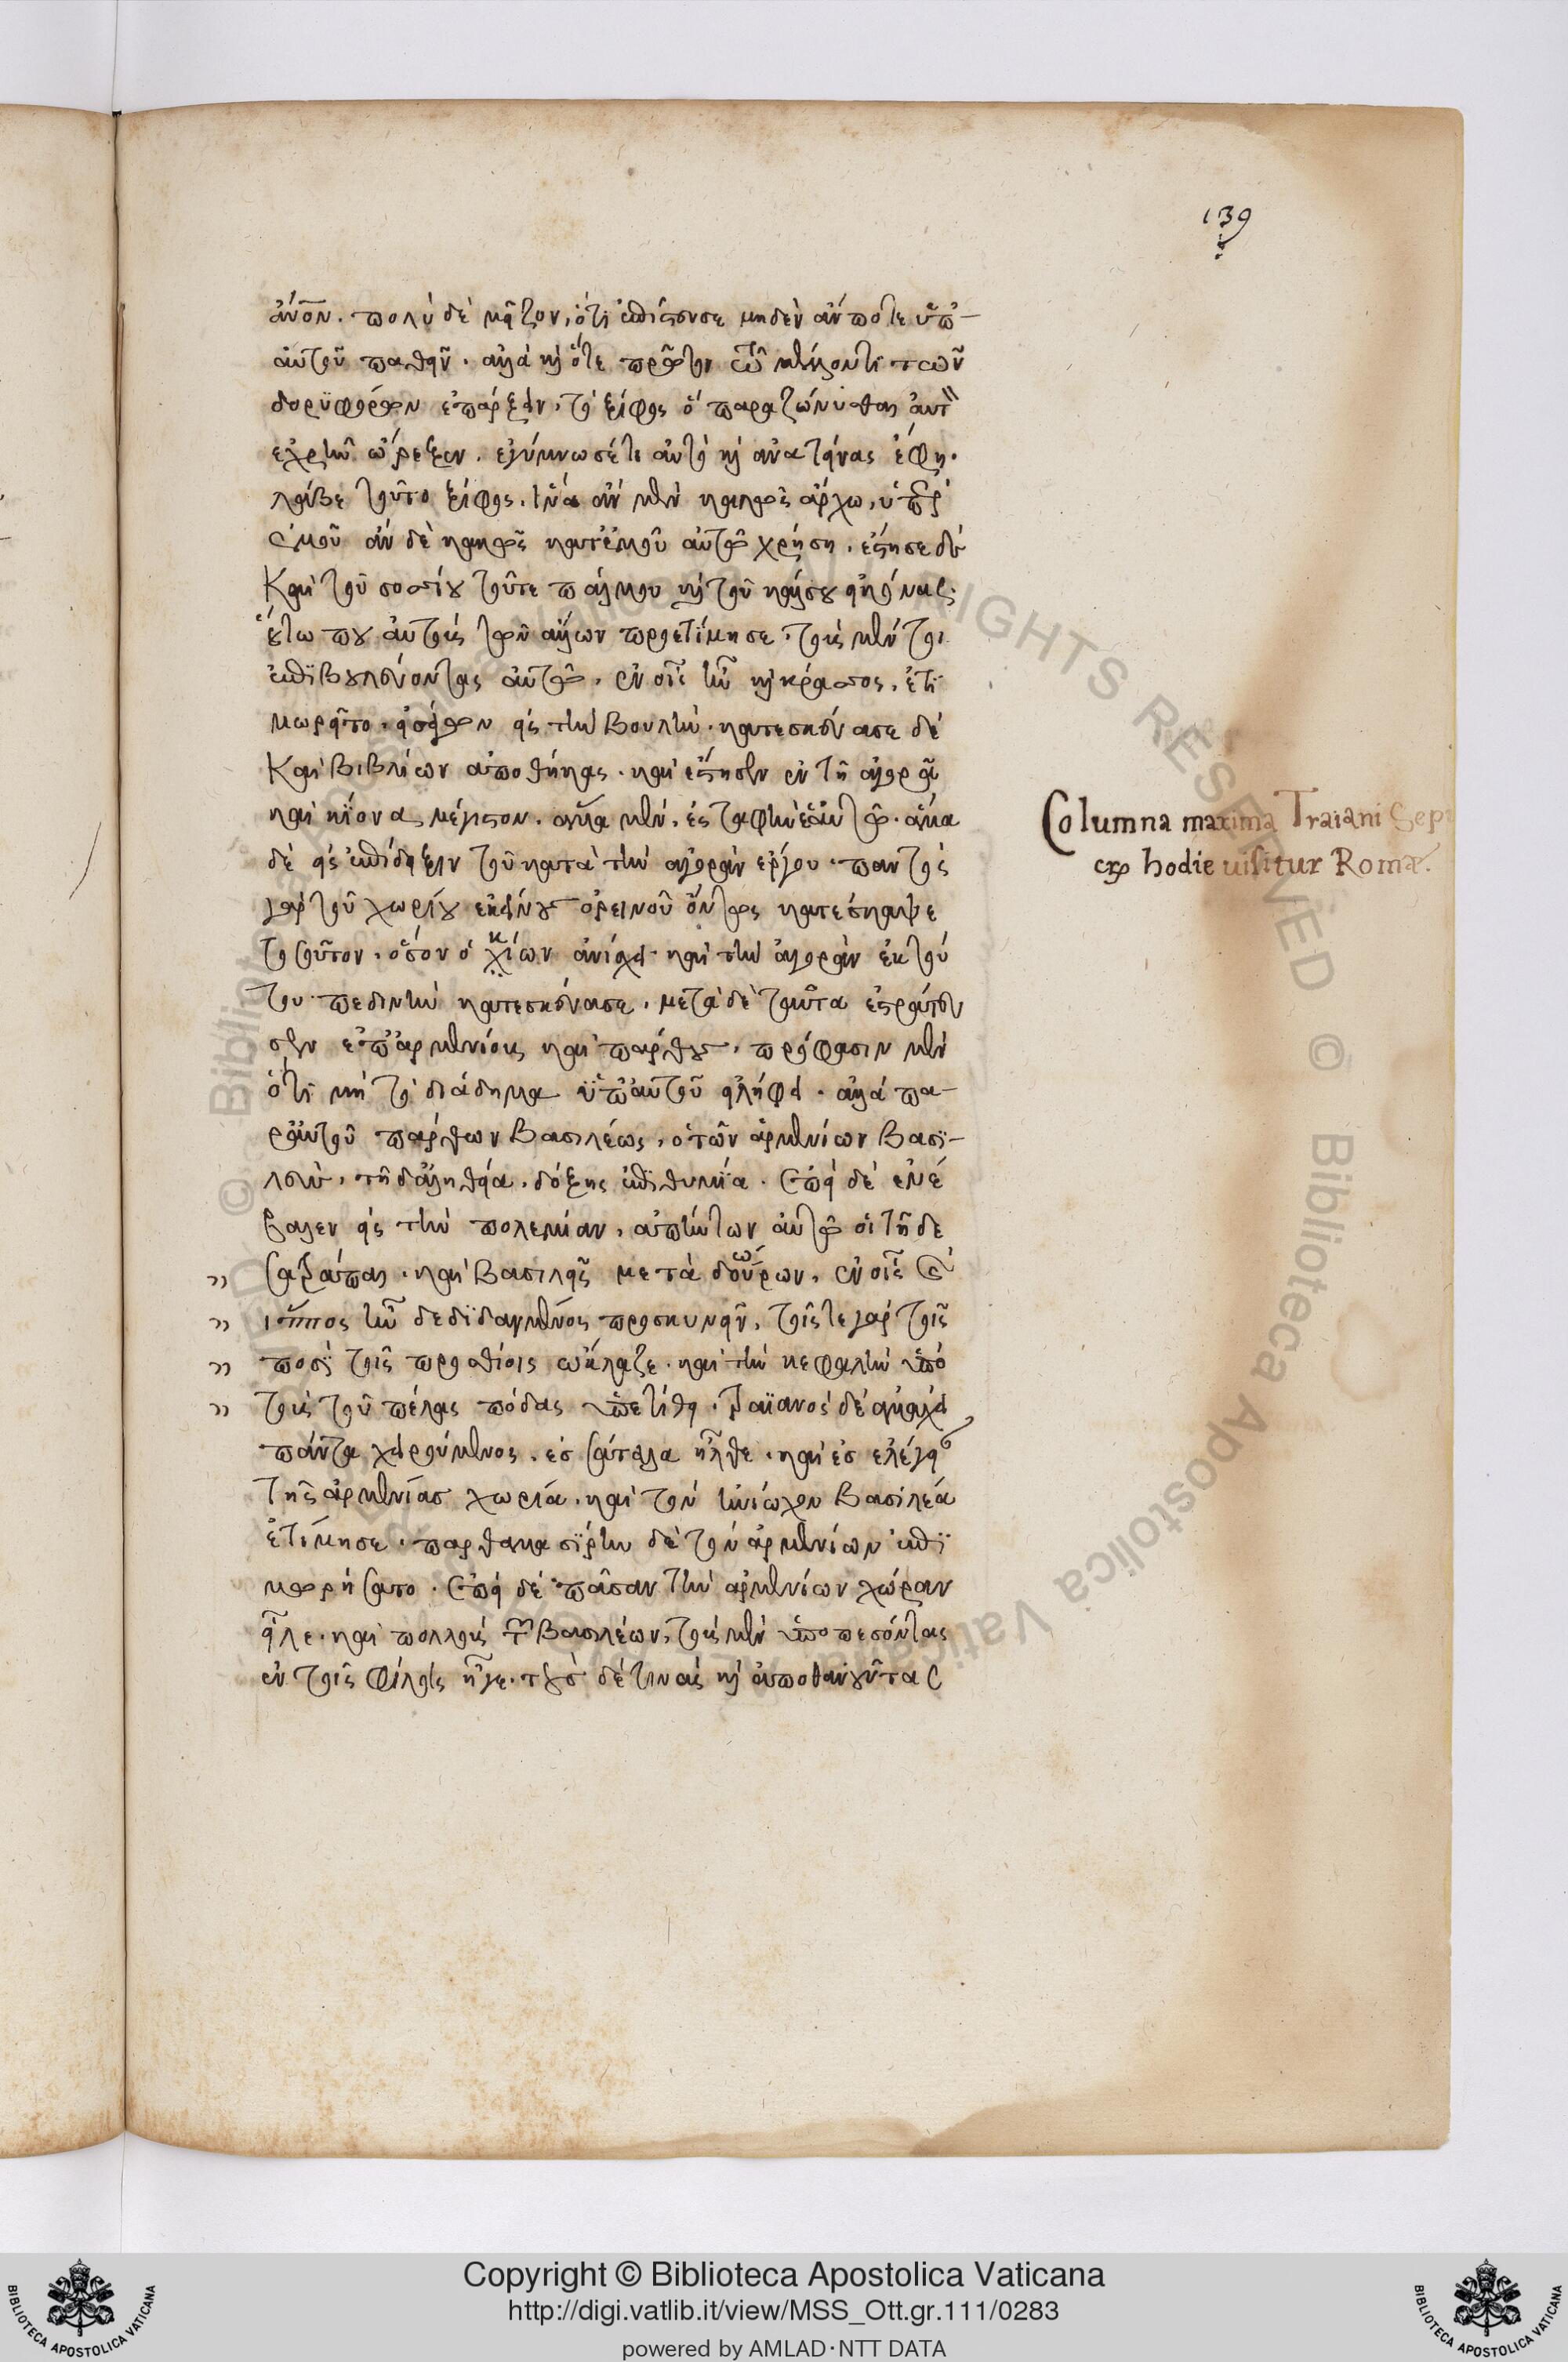 139
ἄνον. πολὺ δὲ μεῖζον, ὅτι ἐπίστευσε μηδὲν ἄν ποτε ὑπ᾽
αὐτοῦ παθεῖν. ἀλλὰ καὶ ὅτε πρῶτον τῶ μέλλοντι τῶν
δορυφόρων ἐπάρξειν, τὸ ξίφος ὃ παραζώννυσθαι αὐτὸν
ἐχρῆν ὤρεξεν. ἐγύμνωσέ τε αὐτὸ καὶ ἀνατείνας ἔφη.
λάβε τοῦτο ξίφος. ἵνα ἂν μὲν καλῶς ἄρχω, ὑπὲρ
ἐμοῦ ἂν δὲ κακῶς κατ᾽ἐμοῦ αὐτῶ χρήση. ἔστησε δὲ
καὶ τοῦ σοσίου τοῦτε πάλμου καὶ τοῦ κέλσου εἰκόνας·
οὕτω που αὐτοὺς τῶν ἄλλων προετίμησε. τοὺς μέντοι
ἐπιβουλεύοντας αὐτῶ, ἐν οἷς ἦν καὶ κράσσος, ἐτι
μωρεῖτο. εἰσάγων εἰς τὴν βουλήν. κατεσκεύασε δὲ
καὶ βιβλίων ἀποθήκας. καὶ ἔστησεν ἐν τῆ ἀγορᾶ
καὶ κίονα μέγιστον. ἅμα μὲν, ἐς ταφὴν ἑαυτῶ. ἅμα
δὲ εἰς ἐπίδειξιν τοῦ κατὰ τὴν ἀγορὰν ἔργου. παντὸς
γὰρ τοῦ χωρίου ἐκείνου ὀρεινοῦ ὄντος κατέσκαψε
τοσοῦτον, ὅσον ὁ κίων ἀνίσχει. καὶ τὴν ἀγορὰν ἐκ τού
του πεδινὴν κατεσκεύασε. μετὰ δὲ ταῦτα ἐστράτευ
σεν ἐπ᾽ἀρμενίους καὶ πάρθους, πρόφασιν μὲν
ὅτι μὴ τὸ διάδημα ὑπ᾽αὐτοῦ εἰλήφει. ἀλλὰ πα-
ρ᾽αὐτοῦ πάρθων βασιλέως, ὁ τῶν ἀρμενίων βασι-
λεὺς, τῆ δ᾽ἀληθεία, δόξης ἐπιθυμία. ἐπεὶ δὲ ἐνέ
βαλεν εἰς τὴν πολεμίαν, ἀπήντων αὐτῶ οἱ τῆδε
σατράπαι. καὶ βασιλεῖς μετὰ δώρων, ἐν οἷς καὶ
ἵππος ἦν δεδιδαγμένος προσκυνεῖν, τοῖς τε γὰρ τοῖς
ποσὶ τοῖς προσθίοις ὤκλαζε. καὶ τὴν κεφαλὴν ὑπὸ
τοὺς τοῦ πέλας πόδας ὑπετίθει. τραϊανὸς δὲ ἀμαχεὶ
πάντα χειρούμενος, ἐς σάταλα ἦλθε. καὶ ἐς ἐλέγεια
τῆς ἀρμενίας χωρία. καὶ τὸν ἡνίοχον βασιλέα
ἐτίμησε. παρθαμασίρην δὲ τὸν ἀρμενίων ἐπι
μωρήσατο. ἐπεὶ δὲ πᾶσαν τὴν ἀρμενίων χώραν
εἷλε. καὶ πολλοὺς τῶν βασιλέων, τοὺς μὲν ὑποπεσόντας
ἐν τοῖς φίλοις ἦγε. τοὺς δέ τινας καὶ ἀποθανοῦντας
Columna maxima Traiani
hodie uisitur Romæ.
Copyright © Biblioteca Apostolica Vaticana
http://digi.vatlib.it/view/MSS_Ott.gr.111/0283
powered by AMLAD·NTT DATA
BIBLIOTECA APOSTOLICA VATICANA
BIBLIOTECA APOSTOLICA VATICANA